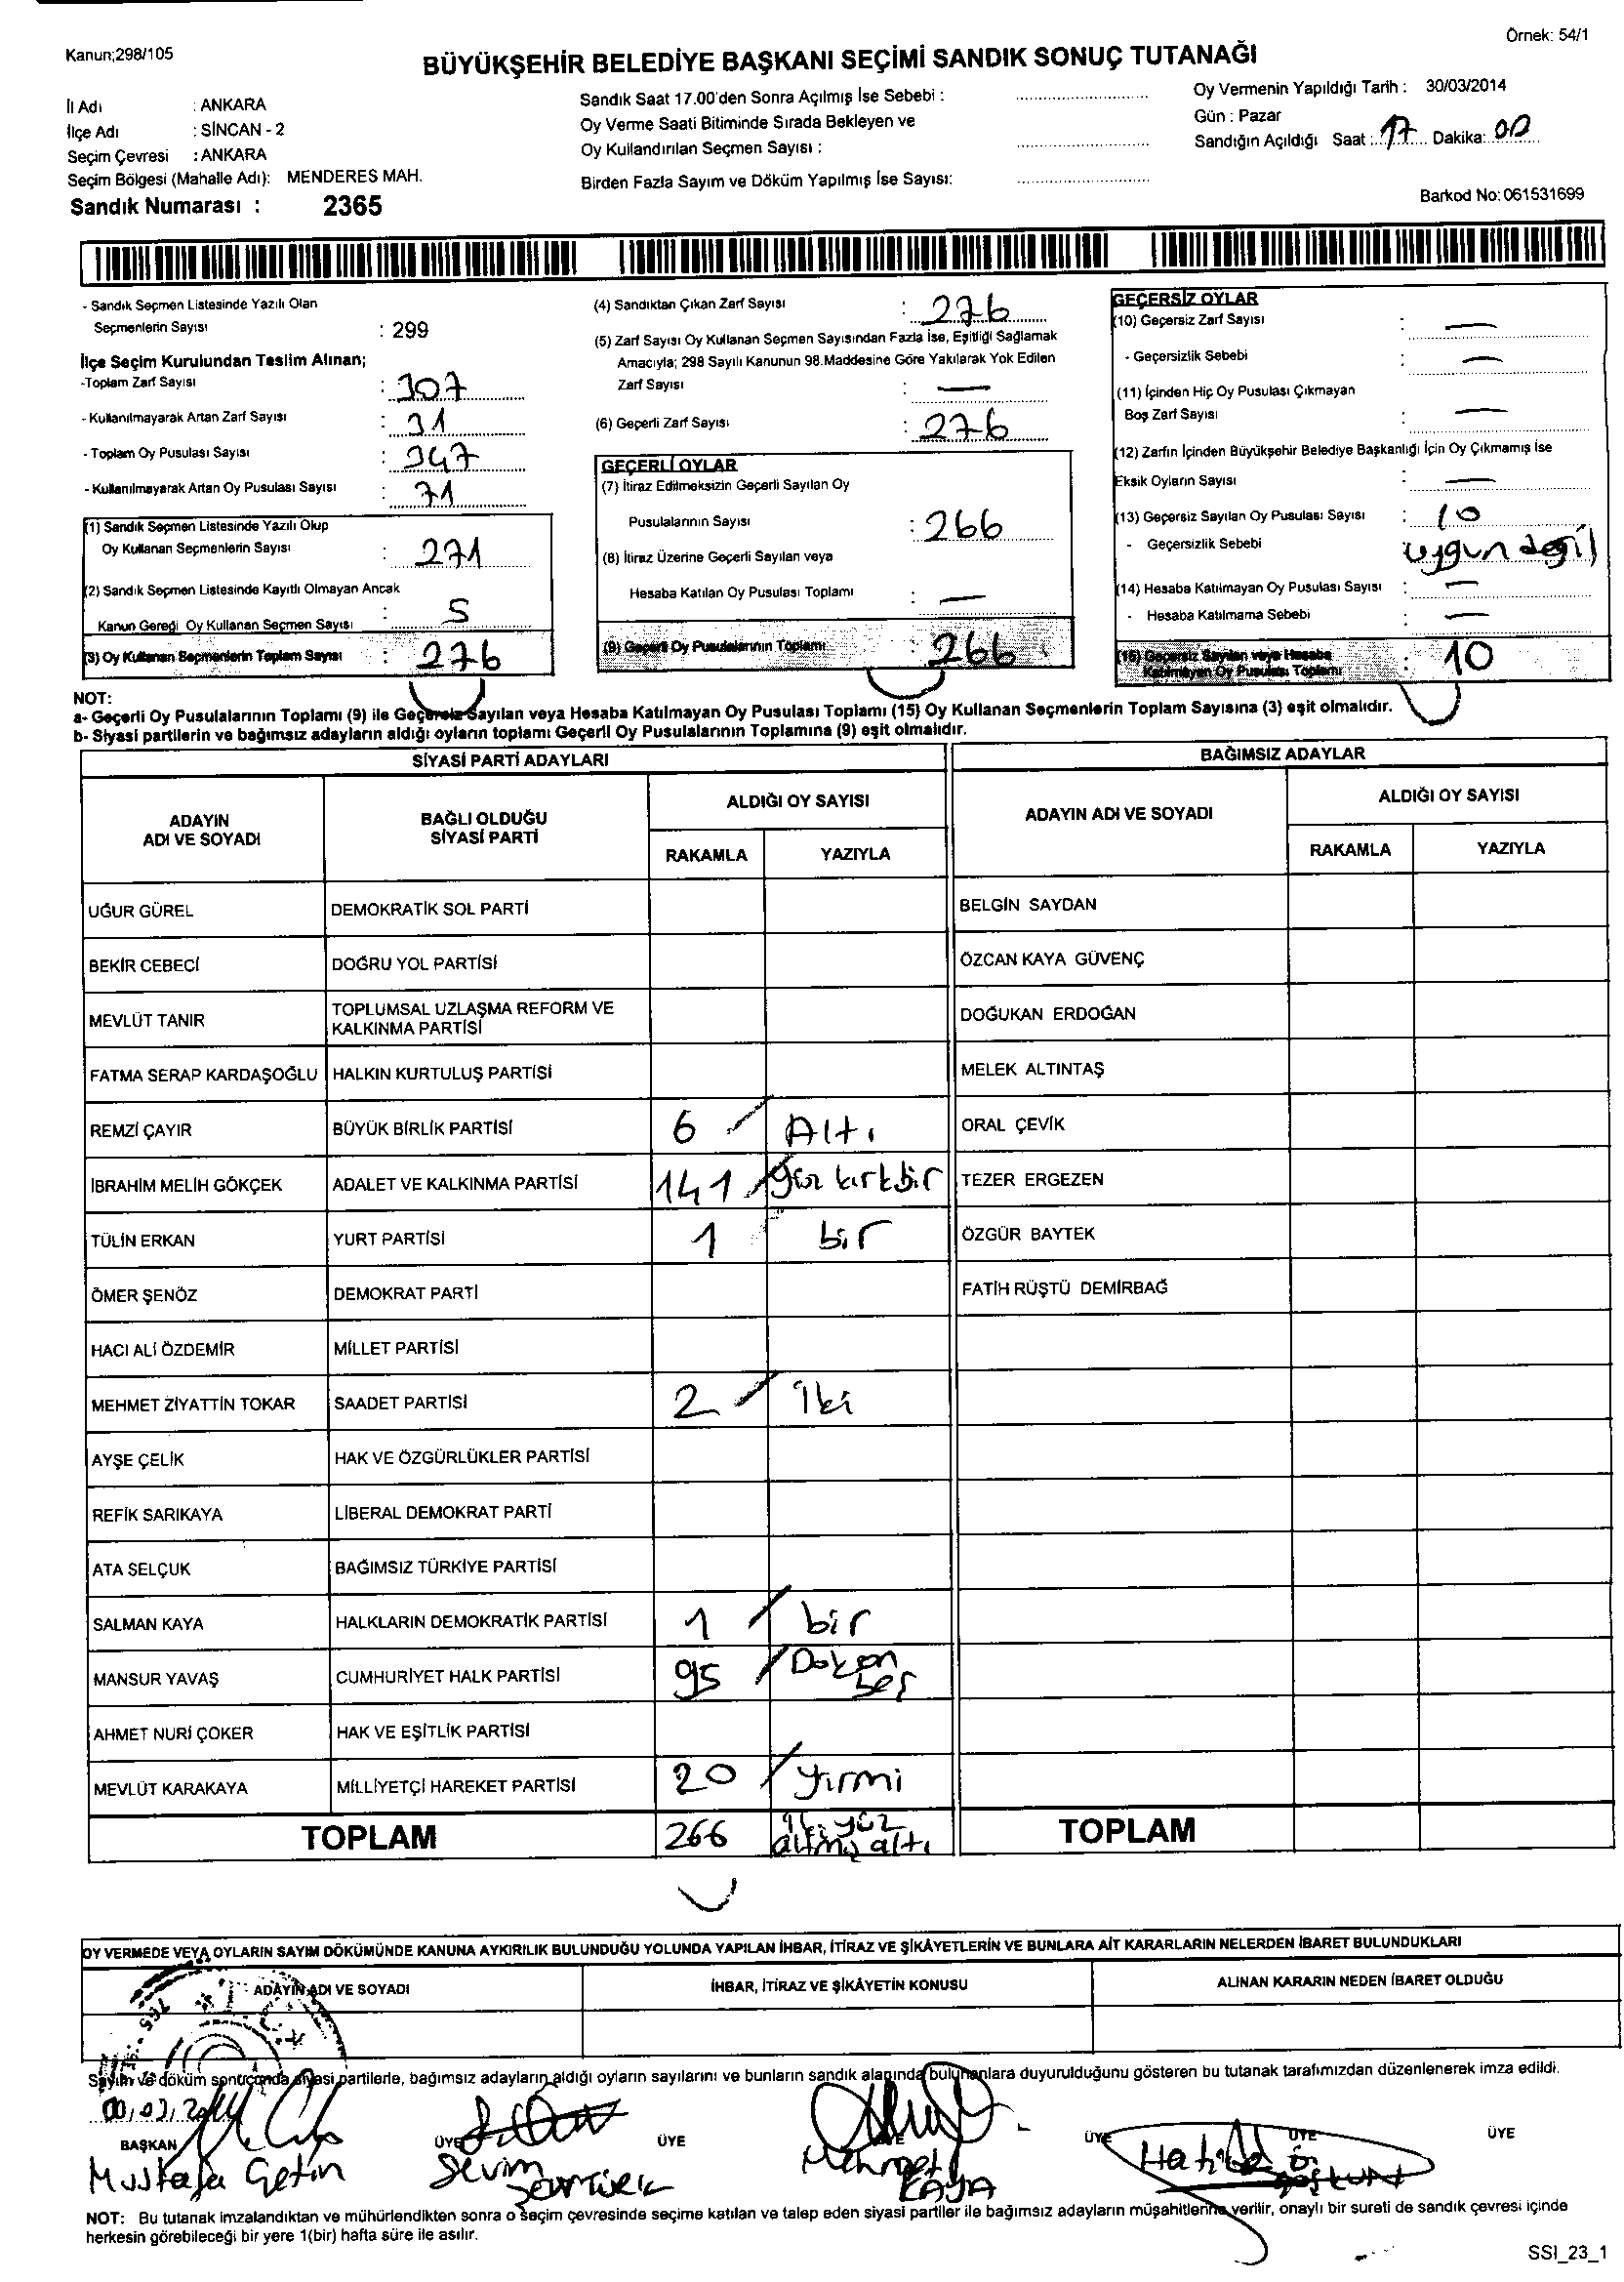 Örnek: 54/1
Kanun;298/105
BÜYÜKŞEHİR BELEDİYE BAŞKANI SEÇİMİ SANDIK SONUÇ TUTANAĞI
İl Adı : ANKARA
İlçe Adı : SİNCAN - 2
Seçim Çevresi : ANKARA
Seçim Bölgesi (Mahalle Adı): MENDERES MAH.
Sandık Numarası : 2365
Sandık Saat 17.00'den Sonra Açılmış İse Sebebi :
Oy Verme Saati Bitiminde Sırada Bekleyen ve
Oy Kullandırılan Seçmen Sayısı :
Birden Fazla Sayım ve Döküm Yapılmış İse Sayısı:
Oy Vermenin Yapıldığı Tarih : 30/03/2014
Gün : Pazar
Sandığın Açıldığı Saat : 17 Dakika: 00
Barkod No: 061531699
- Sandık Seçmen Listesinde Yazılı Olan
Seçmenlerin Sayısı : 299
İlçe Seçim Kurulundan Teslim Alınan;
-Toplam Zarf Sayısı : 307
- Kullanılmayarak Artan Zarf Sayısı : 31
- Toplam Oy Pusulası Sayısı : 347
- Kullanılmayarak Artan Oy Pusulası Sayısı : 71
(1) Sandık Seçmen Listesinde Yazılı Olup
Oy Kullanan Seçmenlerin Sayısı : 271
(2) Sandık Seçmen Listesinde Kayıtlı Olmayan Ancak
Kanun Gereği Oy Kullanan Seçmen Sayısı : 5
(3) Oy Kullanan Seçmenlerin Toplam Sayısı : 276
(4) Sandıktan Çıkan Zarf Sayısı : 276
(5) Zarf Sayısı Oy Kullanan Seçmen Sayısından Fazla İse, Eşitliği Sağlamak
Amacıyla; 298 Sayılı Kanunun 98.Maddesine Göre Yakılarak Yok Edilen
Zarf Sayısı : —
(6) Geçerli Zarf Sayısı : 276
GEÇERLİ OYLAR
(7) İtiraz Edilmeksizin Geçerli Sayılan Oy
Pusulalarının Sayısı : 266
(8) İtiraz Üzerine Geçerli Sayılan veya
Hesaba Katılan Oy Pusulası Toplamı : —
(9) Geçerli Oy Pusulalarının Toplamı : 266
GEÇERSİZ OYLAR
(10) Geçersiz Zarf Sayısı : —
- Geçersizlik Sebebi : —
(11) İçinden Hiç Oy Pusulası Çıkmayan
Boş Zarf Sayısı : —
(12) Zarfın İçinden Büyükşehir Belediye Başkanlığı İçin Oy Çıkmamış İse
Eksik Oyların Sayısı : —
(13) Geçersiz Sayılan Oy Pusulası Sayısı : 10
- Geçersizlik Sebebi : uygun değil
(14) Hesaba Katılmayan Oy Pusulası Sayısı : —
- Hesaba Katılmama Sebebi : —
(15) Geçersiz Sayılan veya Hesaba
Katılmayan Oy Pusulası Toplamı : 10
NOT:
a- Geçerli Oy Pusulalarının Toplamı (9) ile Geçersiz Sayılan veya Hesaba Katılmayan Oy Pusulası Toplamı (15) Oy Kullanan Seçmenlerin Toplam Sayısına (3) eşit olmalıdır.
b- Siyasi partilerin ve bağımsız adayların aldığı oyların toplamı Geçerli Oy Pusulalarının Toplamına (9) eşit olmalıdır.
SİYASİ PARTİ ADAYLARI
ADAYIN ADI VE SOYADI BAĞLI OLDUĞU SİYASİ PARTİ ALDIĞI OY SAYISI
RAKAMLA YAZIYLA
UĞUR GÜREL DEMOKRATİK SOL PARTİ
BEKİR CEBECİ DOĞRU YOL PARTİSİ
MEVLÜT TANIR TOPLUMSAL UZLAŞMA REFORM VE KALKINMA PARTİSİ
FATMA SERAP KARDAŞOĞLU HALKIN KURTULUŞ PARTİSİ
REMZİ ÇAYIR BÜYÜK BİRLİK PARTİSİ 6 / Altı
İBRAHİM MELİH GÖKÇEK ADALET VE KALKINMA PARTİSİ 141 / yüz kırkbir
TÜLİN ERKAN YURT PARTİSİ 1 bir
ÖMER ŞENÖZ DEMOKRAT PARTİ
HACI ALİ ÖZDEMİR MİLLET PARTİSİ
MEHMET ZİYATTİN TOKAR SAADET PARTİSİ 2 / iki
AYŞE ÇELİK HAK VE ÖZGÜRLÜKLER PARTİSİ
REFİK SARIKAYA LİBERAL DEMOKRAT PARTİ
ATA SELÇUK BAĞIMSIZ TÜRKİYE PARTİSİ
SALMAN KAYA HALKLARIN DEMOKRATİK PARTİSİ 1 / bir
MANSUR YAVAŞ CUMHURİYET HALK PARTİSİ 95 / Doksan beş
AHMET NURİ ÇOKER HAK VE EŞİTLİK PARTİSİ
MEVLÜT KARAKAYA MİLLİYETÇİ HAREKET PARTİSİ 20 / Yirmi
TOPLAM 266 ikiyüz altmış altı
BAĞIMSIZ ADAYLAR
ADAYIN ADI VE SOYADI ALDIĞI OY SAYISI
RAKAMLA YAZIYLA
BELGİN SAYDAN
ÖZCAN KAYA GÜVENÇ
DOĞUKAN ERDOĞAN
MELEK ALTINTAŞ
ORAL ÇEVİK
TEZER ERGEZEN
ÖZGÜR BAYTEK
FATİH RÜŞTÜ DEMİRBAĞ
TOPLAM
OY VERMEDE VEYA OYLARIN SAYIM DÖKÜMÜNDE KANUNA AYKIRILIK BULUNDUĞU YOLUNDA YAPILAN İHBAR, İTİRAZ VE ŞİKÂYETLERİN VE BUNLARA AİT KARARLARIN NELERDEN İBARET BULUNDUKLARI
ADAYIN ADI VE SOYADI İHBAR, İTİRAZ VE ŞİKÂYETİN KONUSU ALINAN KARARIN NEDEN İBARET OLDUĞU
Sayım ve döküm sonucunda siyasi partilerle, bağımsız adayların aldığı oyların sayılarını ve bunların sandık alanında bulunanlara duyurulduğunu gösteren bu tutanak tarafımızdan düzenlenerek imza edildi.
BAŞKAN ÜYE ÜYE ÜYE ÜYE ÜYE ÜYE
Mustafa Çetin Sevim Mehmet KAYA
NOT: Bu tutanak imzalandıktan ve mühürlendikten sonra o seçim çevresinde seçime katılan ve talep eden siyasi partiler ile bağımsız adayların müşahitlerine verilir, onaylı bir sureti de sandık çevresi içinde
herkesin görebileceği bir yere 1(bir) hafta süre ile asılır.
SSI_23_1